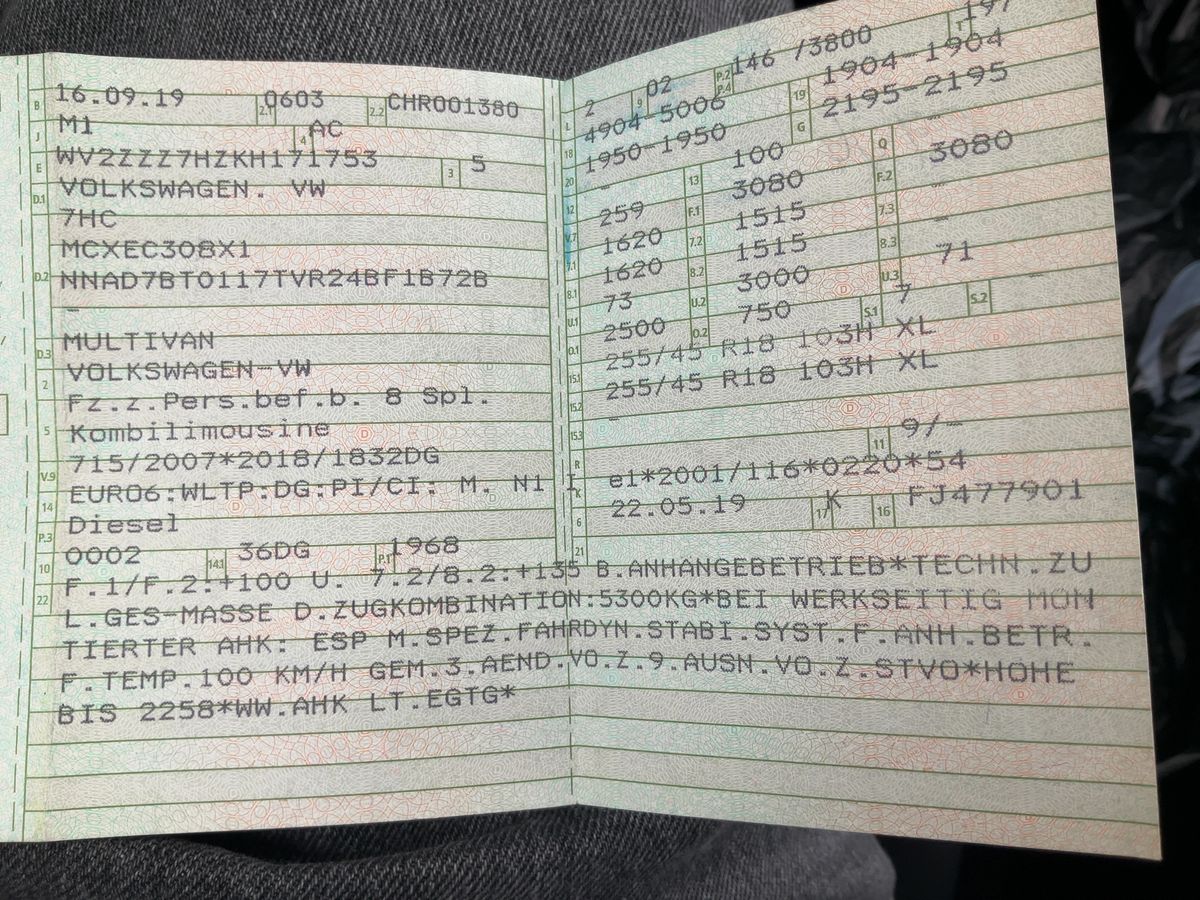 B 16.09.19 2.1 0603 2.2 CHR001380
J M1 4 AC
E WV2ZZZ7HZKH171753 3 5
D.1 VOLKSWAGEN. VW
7HC
MCXEC308X1
D.2 NNAD7BT0117TVR24BF1B72B
–
D.3 MULTIVAN
2 VOLKSWAGEN-VW
Fz.z.Pers.bef.b. 8 Spl.
5 Kombilimousine
V.9 715/2007*2018/1832DG
14 EURO6:WLTP:DG:PI/CI: M. N1 I
P.3 Diesel
10 0002 14.1 36DG P.1 1968
L 2 9 02 P.2 P.4 146 /3800 T 197
18 4904-5006 19 1904-1904
20 1950-1950 G 2195-2195
12 – 13 100 Q –
V.7 259 F.1 3080 F.2 3080
7.1 1620 7.2 1515 7.3 –
8.1 1620 8.2 1515 8.3 –
U.1 73 U.2 3000 U.3 71
O.1 2500 O.2 750 S.1 7 S.2 –
15.1 255/45 R18 103H XL
15.2 255/45 R18 103H XL
15.3 –
R 11 9/–
K e1*2001/116*0220*54
6 22.05.19 17 K 16 FJ477901
21
22 F.1/F.2:+100 U. 7.2/8.2:+135 B.ANHANGEBETRIEB*TECHN.ZU
L.GES-MASSE D.ZUGKOMBINATION:5300KG*BEI WERKSEITIG MON
TIERTER AHK: ESP M.SPEZ.FAHRDYN.STABI.SYST.F.ANH.BETR.
F.TEMP.100 KM/H GEM.3.AEND.VO.Z.9.AUSN.VO.Z.STVO*HOHE
BIS 2258*WW.AHK LT.EGTG*